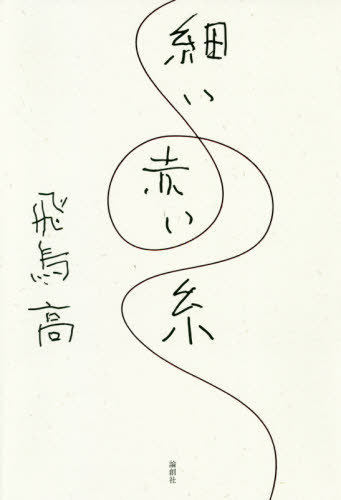 細い
赤い
糸
飛鳥高
論創社